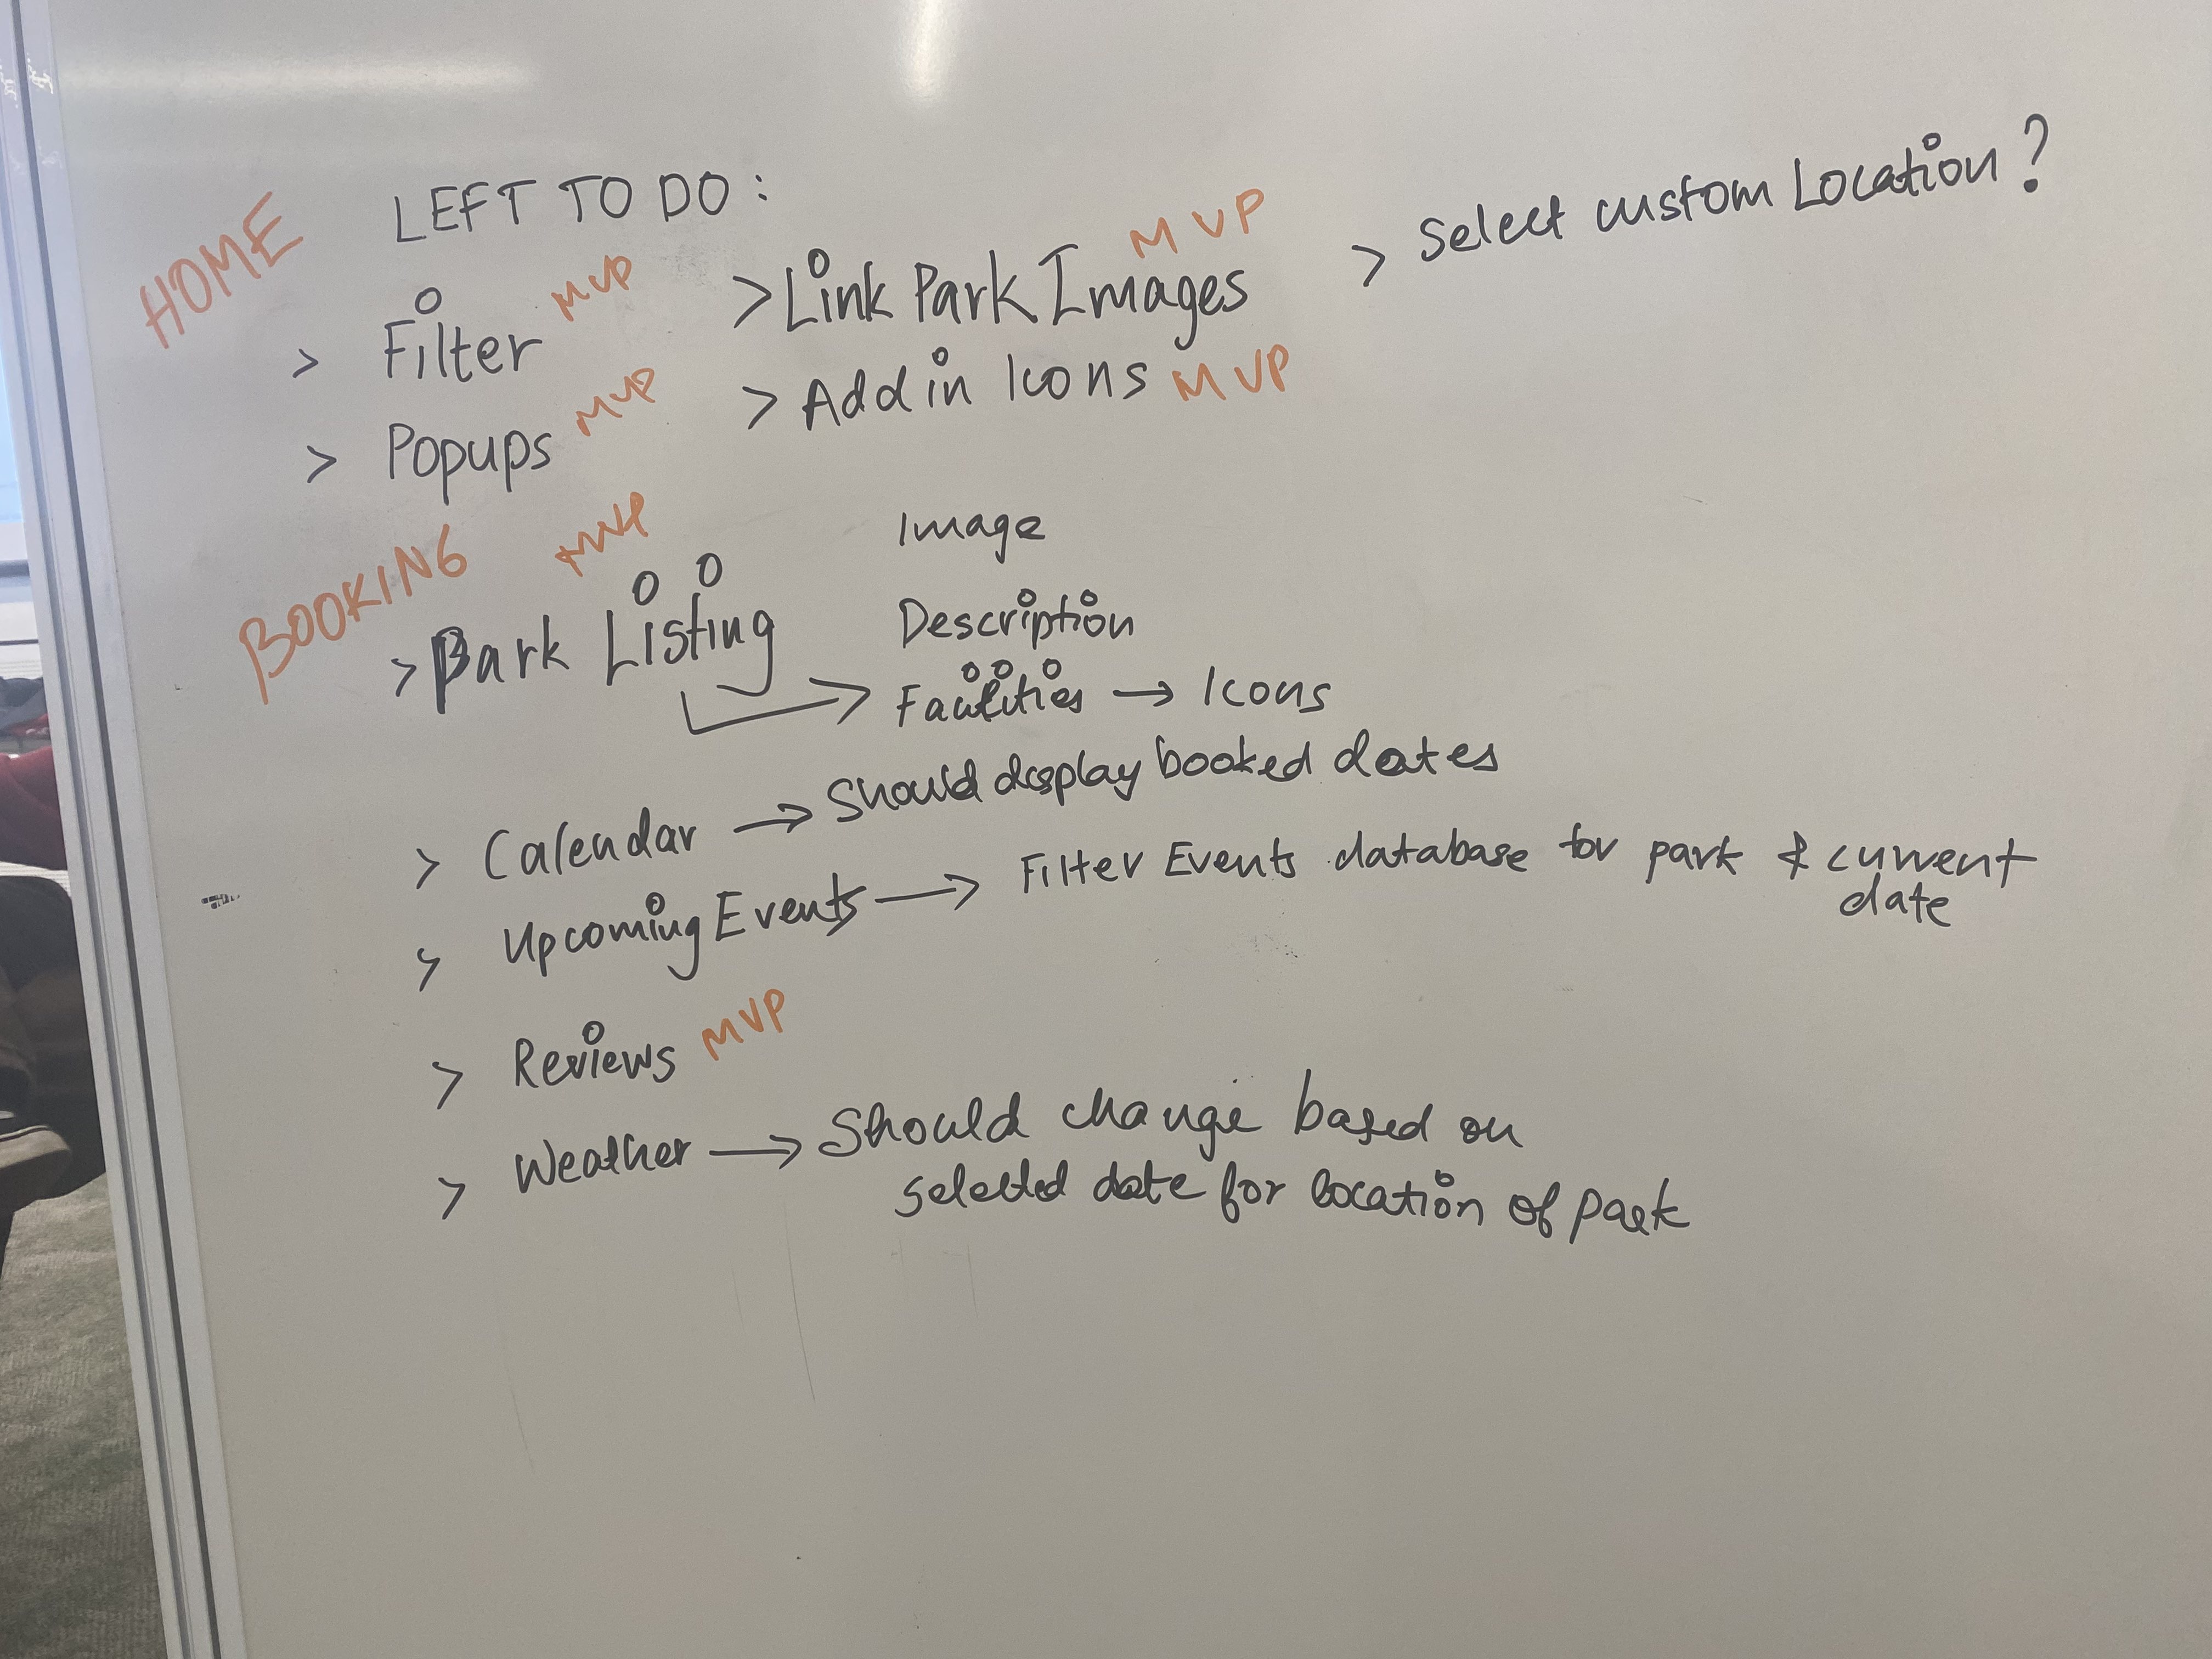 HOME
LEFT TO DO:
> Filter MVP
> Popups MVP
> Link Park Images MVP
> Add in Icons MVP
> Select custom Location?
BOOKING
MVP
> Park Listing
Image
Description
Facilities → Icons
> Calendar → Should display booked dates
> Upcoming Events → Filter Events database for park & current
date
> Reviews MVP
> Weather → Should change based on
selected date for location of park